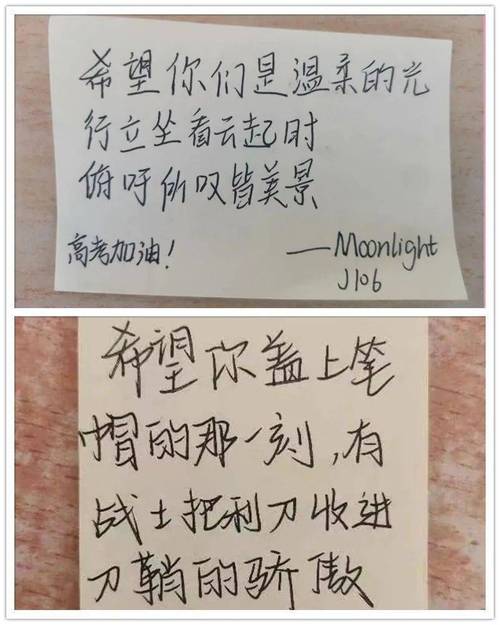 希望你们是温柔的光
行立坐看云起时
俯吁所叹皆美景
高考加油！
——Moonlight
J106
希望你盖上笔
帽的那一刻,有
战士把利刀收进
刀鞘的骄傲